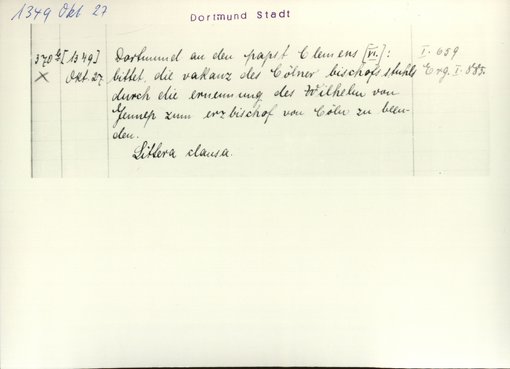 1349 Okt 27
Dortmund Stadt
370 [1349] Dortmund an den papst Clemens [VI.]: I. 659
X Okt. 27 bittet, die vakanz des Cölner bischofsstuhls Erg. I. 885.
durch die ernennung des Wilhelm von
Gennep zum erzbischof von Cöln zu been-
den.
Littera clausa.